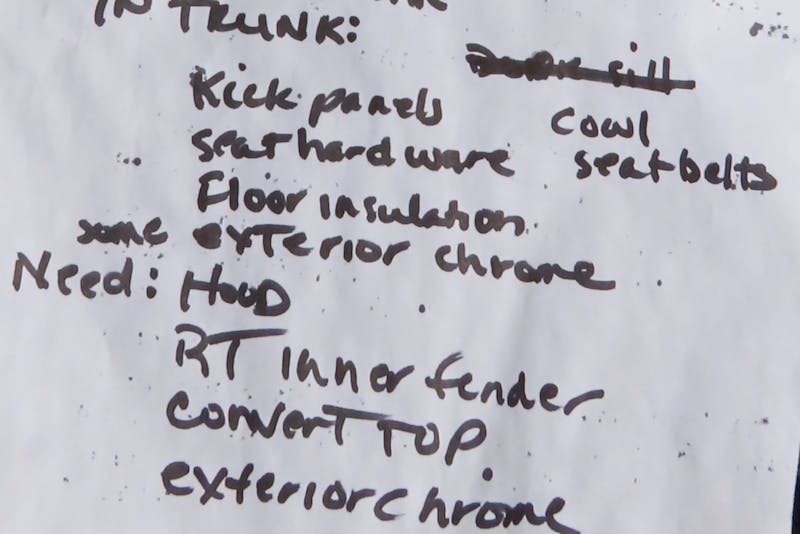 IN TRUNK:
sill
Kick panels
cowl
seat hardware
seat belts
Floor insulation
some exterior chrome
Need: HOOD
RT inner fender
convert TOP
exterior chrome